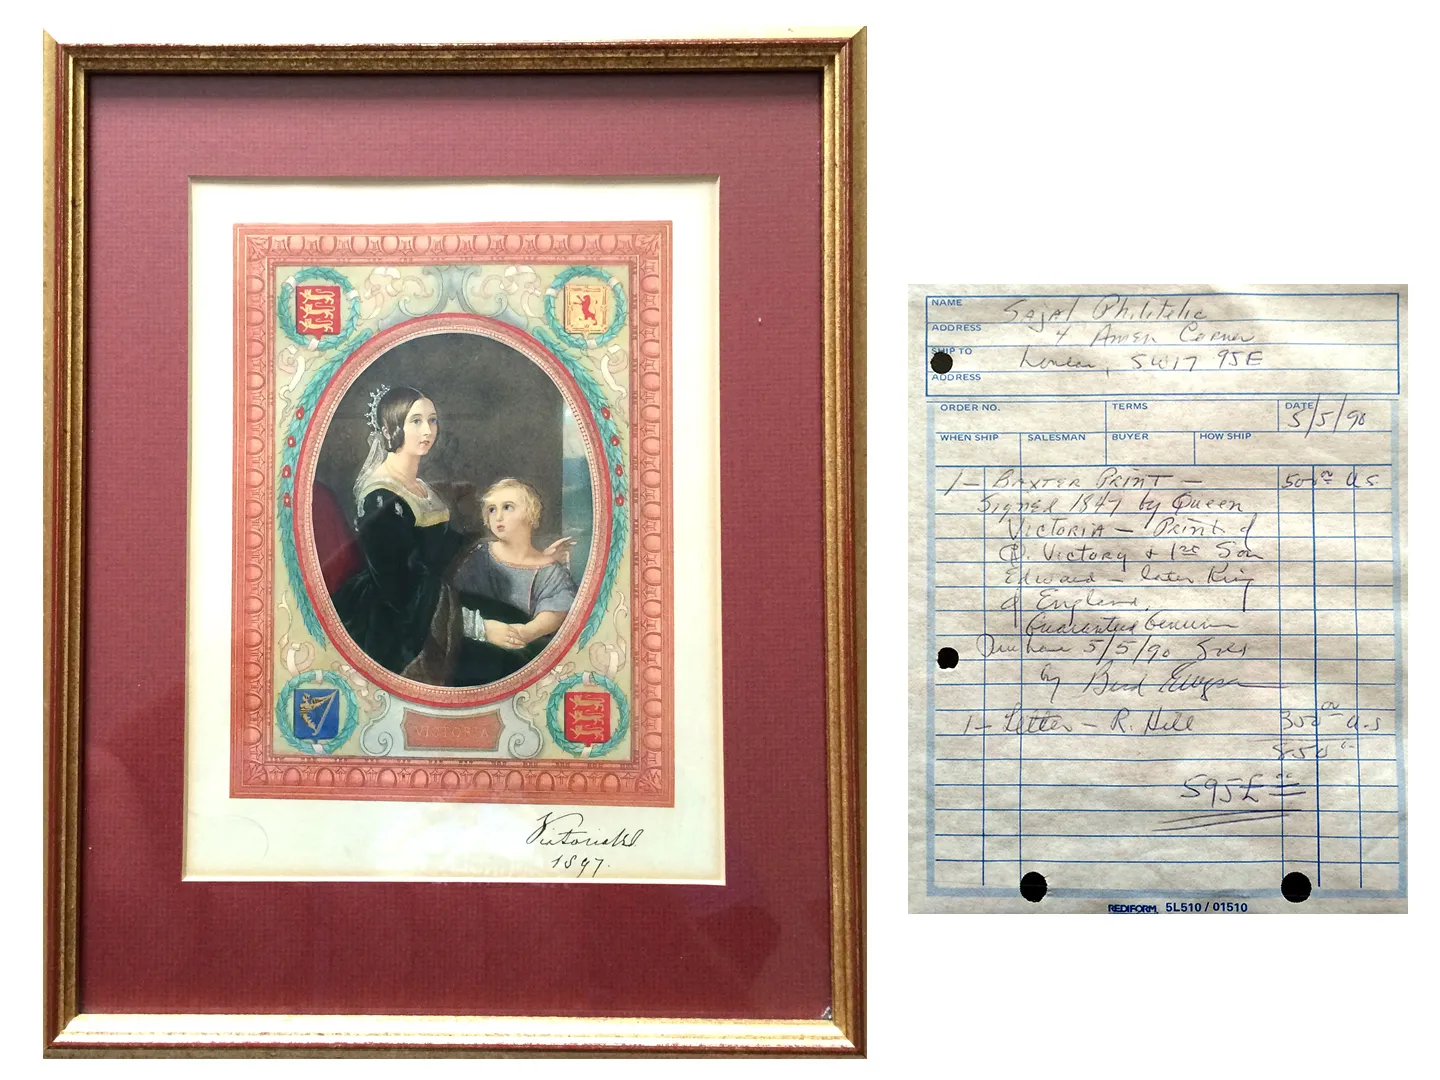 VICTORIA
Victoria RI
1897.
NAME Sajal Philitelic
ADDRESS 4 Amen Corner
SHIP TO London, SW17 9JE
ADDRESS
ORDER NO. TERMS DATE 5/5/90
WHEN SHIP SALESMAN BUYER HOW SHIP
1 - BAXTER PRINT - 500 00 U.S.
Signed 1847 by Queen
VICTORIA - Print of
Q. Victory & 1st Son
Edward - later King
of England.
Guarantee Genuine
5/5/90 Sold
by
1 - Letter - R. Hill 350 00 U.S
850
595£ 00
REDIFORM 5L510 / 01510